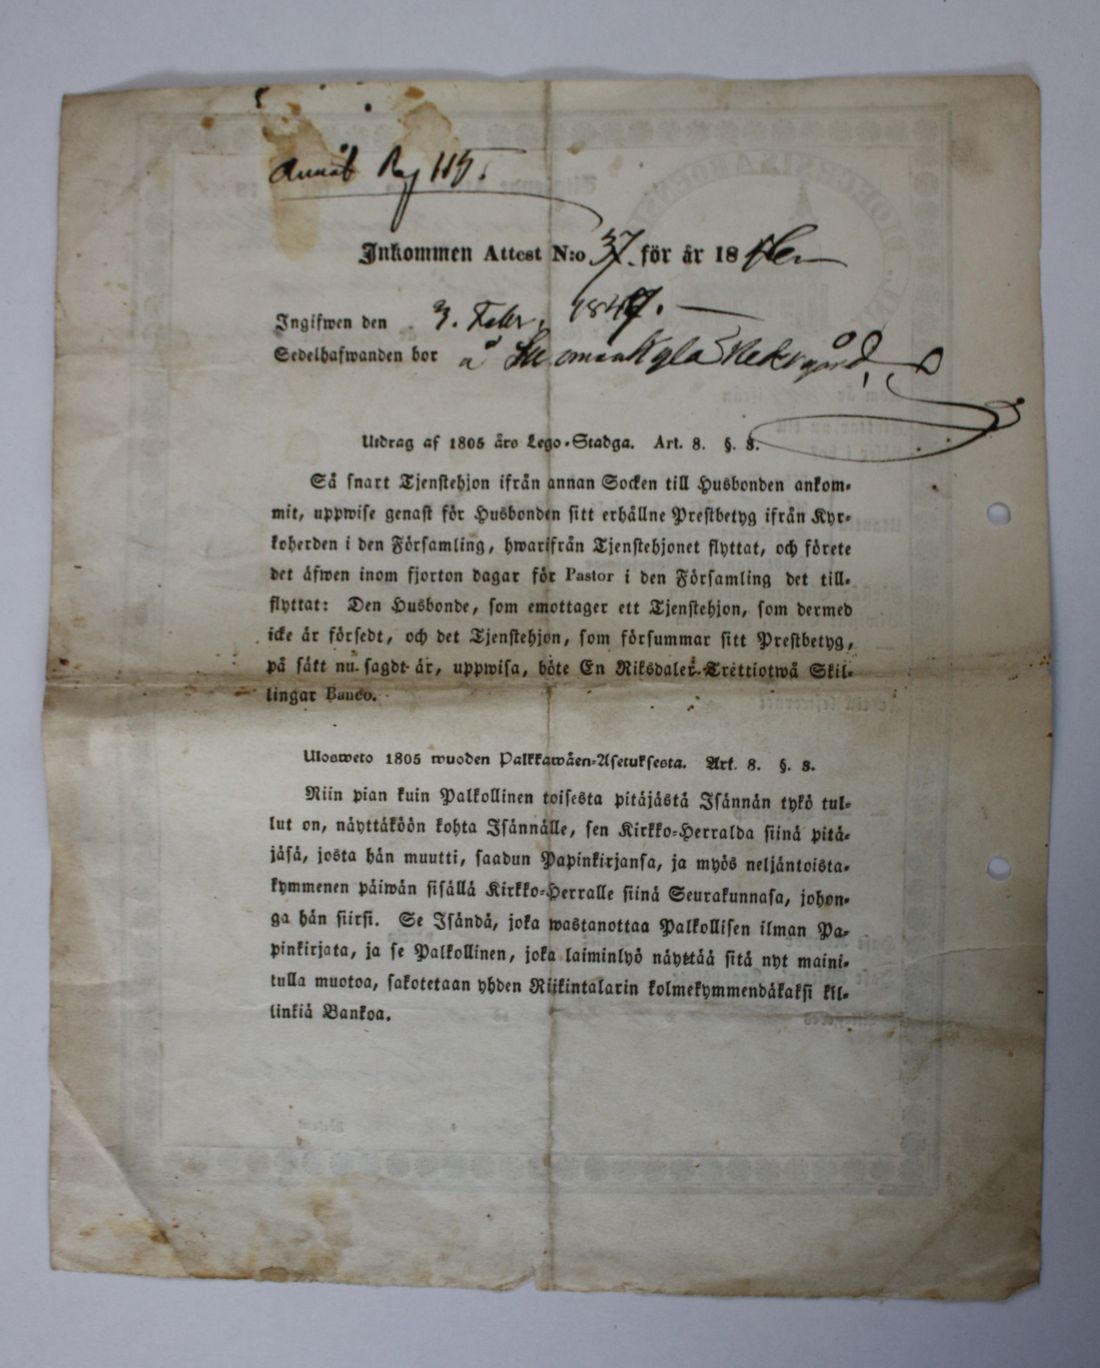 Pag 115.
Inkommen Attest N:o 37. för år 18
Ingifwen den 3. Febr. 1847.
Sedelhafwanden bor å
Utdrag af 1805 års Lego-Stadga. Art. 8. §. 8.
Så snart Tjenstehjon ifrån annan Socken till Husbonden ankom-
mit, uppwise genast för Husbonden sitt erhållne Prestbetyg ifrån Kyr-
koherden i den Församling, hwarifrån Tjenstehjonet flyttat, och förete
det äfwen inom fjorton dagar för Pastor i den Församling det till-
flyttat: Den Husbonde, som emottager ett Tjenstehjon, som dermed
icke är försedt, och det Tjenstehjon, som försummar sitt Prestbetyg,
på sätt nu sagdt är, uppwisa, böte En Riksdaler Trettiotwå Skil-
lingar Banco.
Ulosweto 1805 wuoden Palkkawäen-Asetuksesta. Art. 8. §. 8.
Niin pian kuin Palkollinen toisesta pitäjästä Isännän tykö tul-
lut on, näyttäköön kohta Isännälle, sen Kirkko-Herralda siinä pitä-
jäsä, josta hän muutti, saadun Papinkirjansa, ja myös neljäntoista-
kymmenen päiwän sisällä Kirkko-Herralle siinä Seurakunnasa, johon-
ga hän siirsi. Se Isändä, joka wastanottaa Palkollisen ilman Pa-
pinkirjata, ja se Palkollinen, joka laiminlyö näyttää sitä nyt maini-
tulla muotoa, sakotetaan yhden Riikintalarin kolmekymmendäkaksi kil-
linkiä Bankoa.